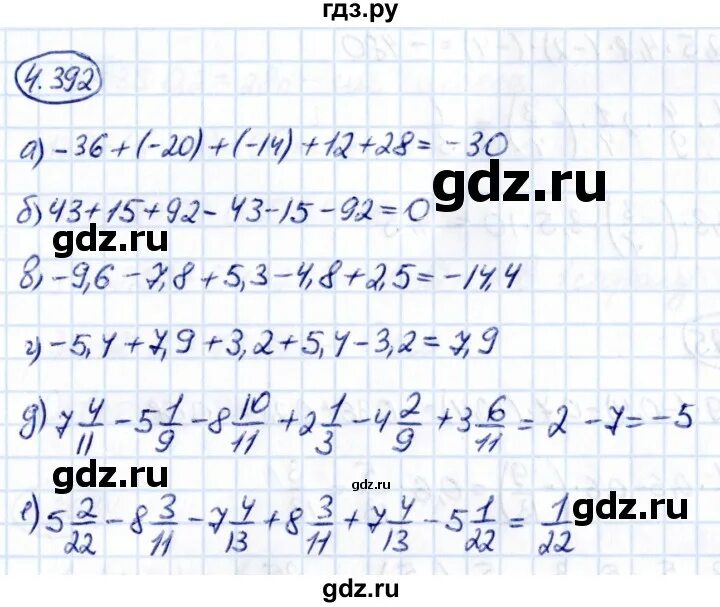 гдз.ру
4.392
а) -36+(-20)+(-14)+12+28= -30
gdz.ru
б) 43+15+92-43-15-92=0
gdz.ru
в) -9,6-7,8+5,3-4,8+2,5=-14,4
г) -5,4+7,9+3,2+5,4-3,2=7,9
д) 7 4/11 - 5 1/9 - 8 10/11 + 2 1/3 - 4 2/9 + 3 6/11 = 2-7=-5
gdz.ru
е) 5 2/22 - 8 3/11 - 7 4/13 + 8 3/11 + 7 4/13 - 5 1/22 = 1/22
gdz.ru
gdz.ru
gdz.ru